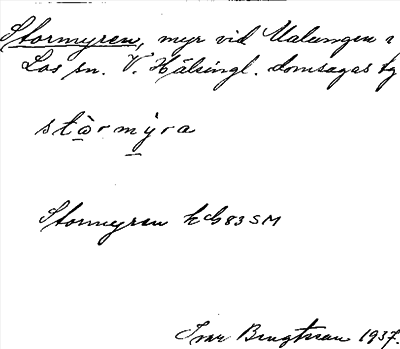 Stormyren, myr vid Ualungen i
Los sn. V. Hälsingl. domsagas tg
stòrmỳra
Stormyren kb 83 SM
Ivar Bengtsson 1937.